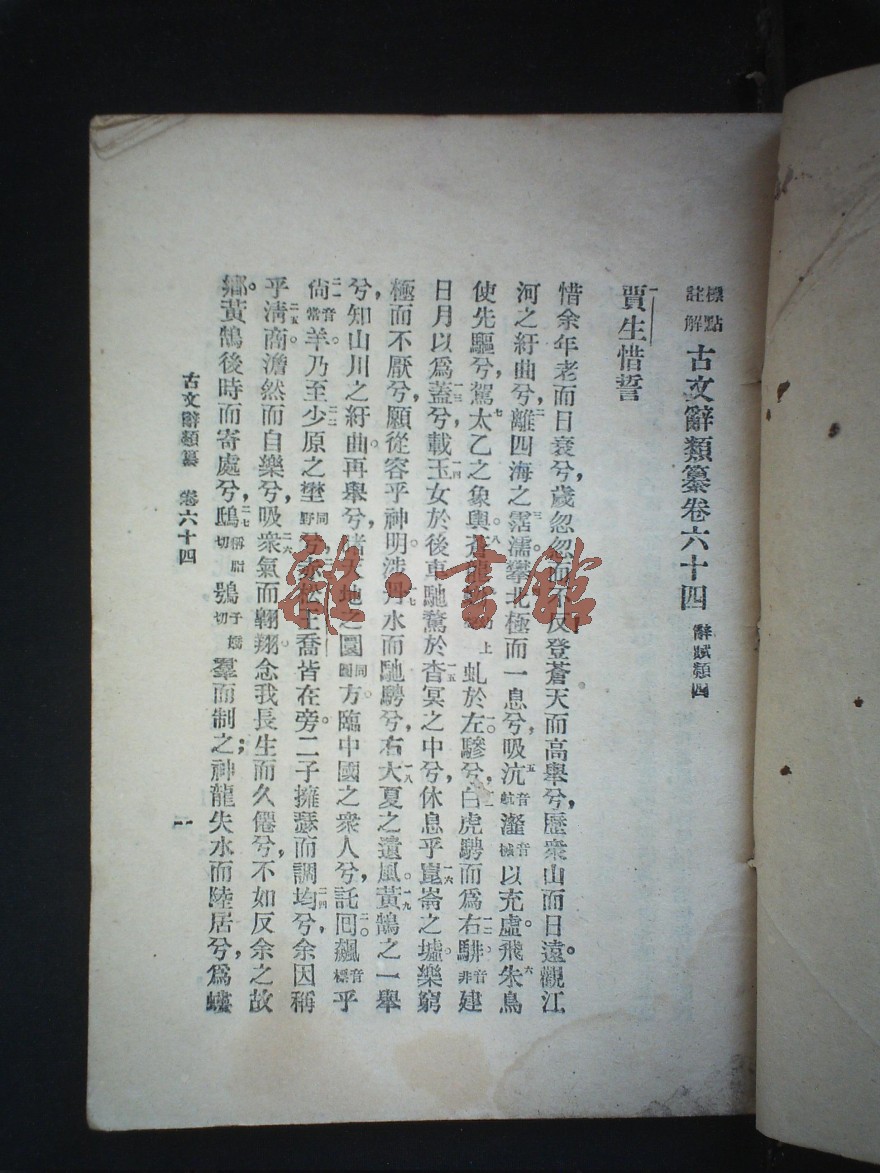 標點註解 古文辭類纂卷六十四 辭賦類四
賈生惜誓
惜余年老而日衰兮，歲忽忽而不反登蒼天而高舉兮，歷衆山而日遠。觀江
河之紆曲兮，離四海之霑濡攀北極而一息兮，吸沆音航瀣音械以充虛。飛朱鳥
使先驅兮，駕太乙之象輿蒼龍 上虬於左驂兮，白虎騁而爲右騑音非建
日月以爲蓋兮，載玉女於後車馳騖於杳冥之中兮，休息乎崑崙之墟樂窮
極而不厭兮，願從容乎神明。涉丹水而馳騁兮，右大夏之遺風。黃鵠之一舉
兮，知山川之紆曲。再舉兮，睹天地之圜同圓方。臨中國之衆人兮，託囘飆音標乎
尙音常羊乃至少原之壄同野兮赤松王喬皆在旁。二子擁瑟而調均兮，余因稱
乎淸商。澹然而自樂兮，吸衆氣而翺翔。念我長生而久僊兮，不如反余之故
鄉。黃鵠後時而寄處兮，鴟稱脂切鴞子嬌切羣而制之；神龍失水而陸居兮，爲螻
古文辭類纂 卷六十四
一
雜·書館